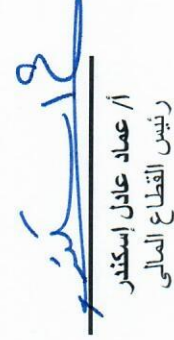 أ/ عماد عادل إسكندر
رئيس القطاع المالى